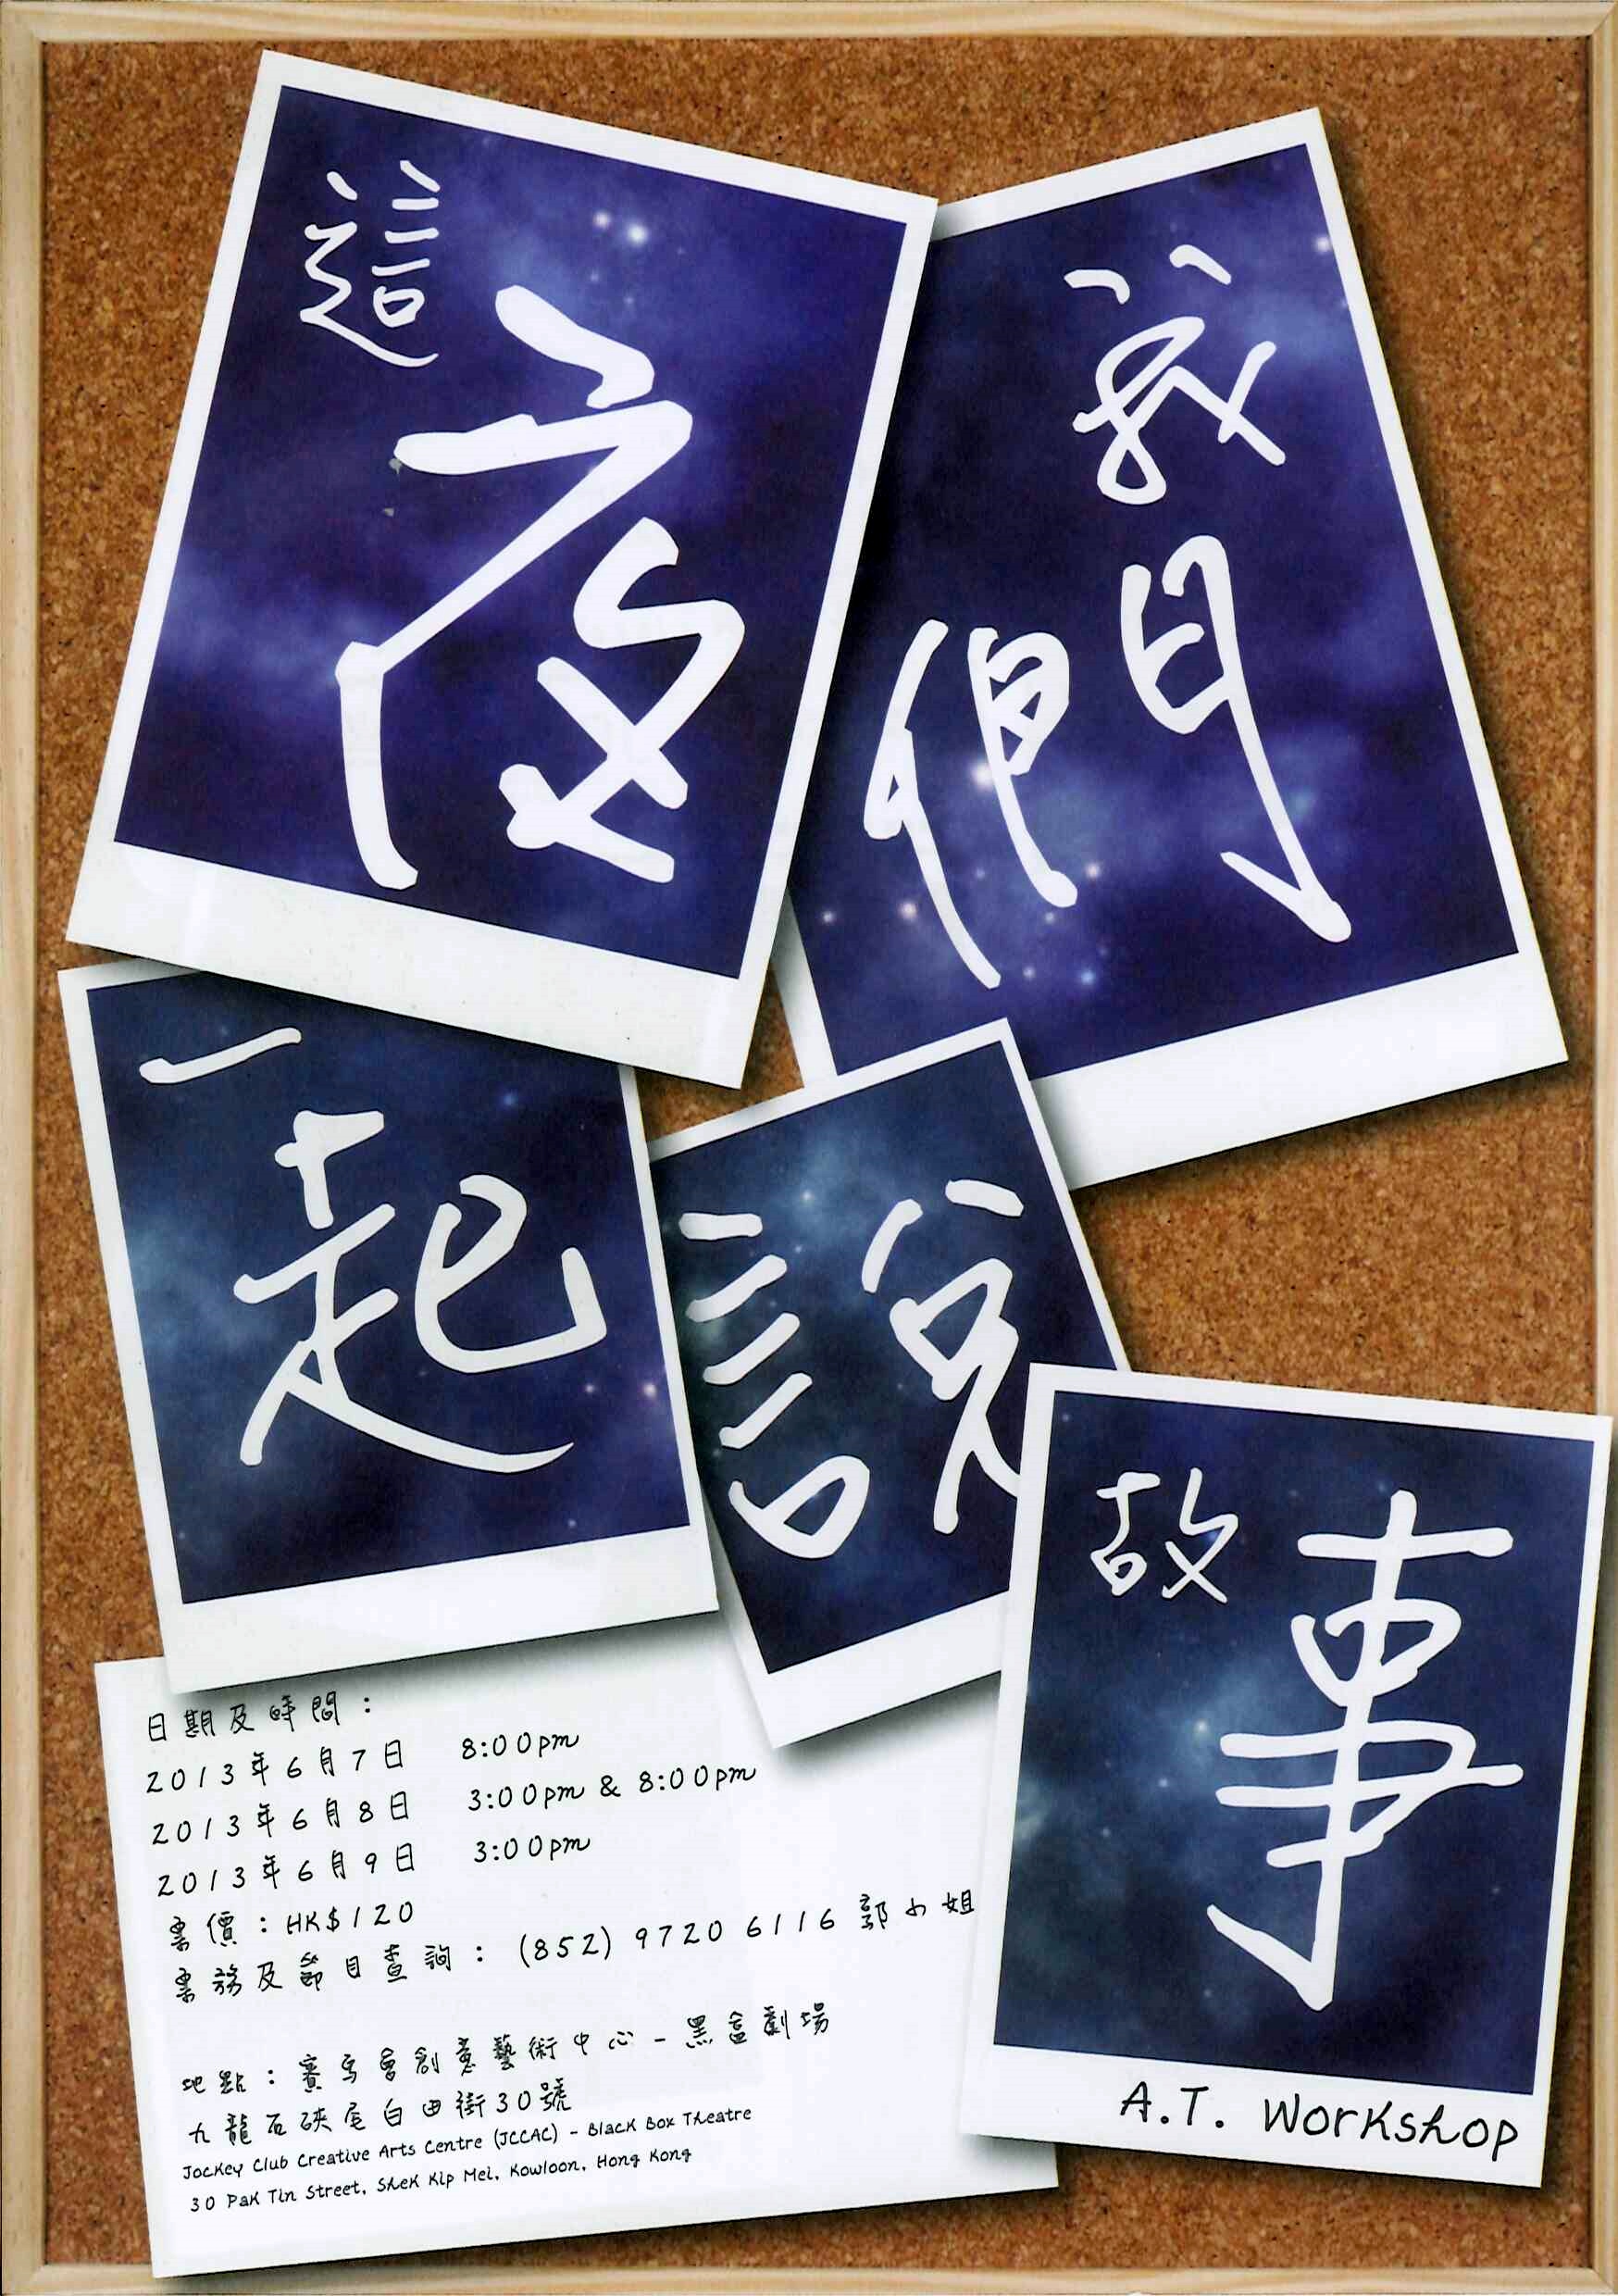 這夜
我們
一起
說
故事
A.T. Workshop
日期及時間：
2013年6月7日 8:00pm
2013年6月8日 3:00pm & 8:00pm
2013年6月9日 3:00pm
票價：HK$120
票務及節目查詢：(852) 9720 6116 郭小姐
地點：賽馬會創意藝術中心 - 黑盒劇場
九龍石硤尾白田街30號
Jockey Club Creative Arts Centre (JCCAC) - Black Box Theatre
30 Pak Tin Street, Shek Kip Mei, Kowloon, Hong Kong